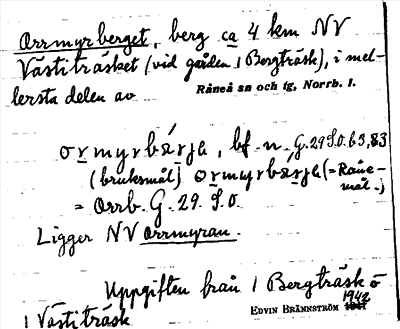 Orrmyrberget, berg ca 4 km NV
Västiträsket (vid gården 1 Bergträsk), i mel-
lersta delen av
Råneå sn och tg, Norrb. l.
orrmyrbärja, bf. n. G. 29 S.O. 63,83
(bruksmål) ormyrbärja (= Råne-
mål.)
= Orrb. G. 29. S.O.
Ligger NV orrmyran.
Uppgiften från 1 Bergträsk o
1 Västiträsk
EDVIN BRÄNNSTRÖM 1942